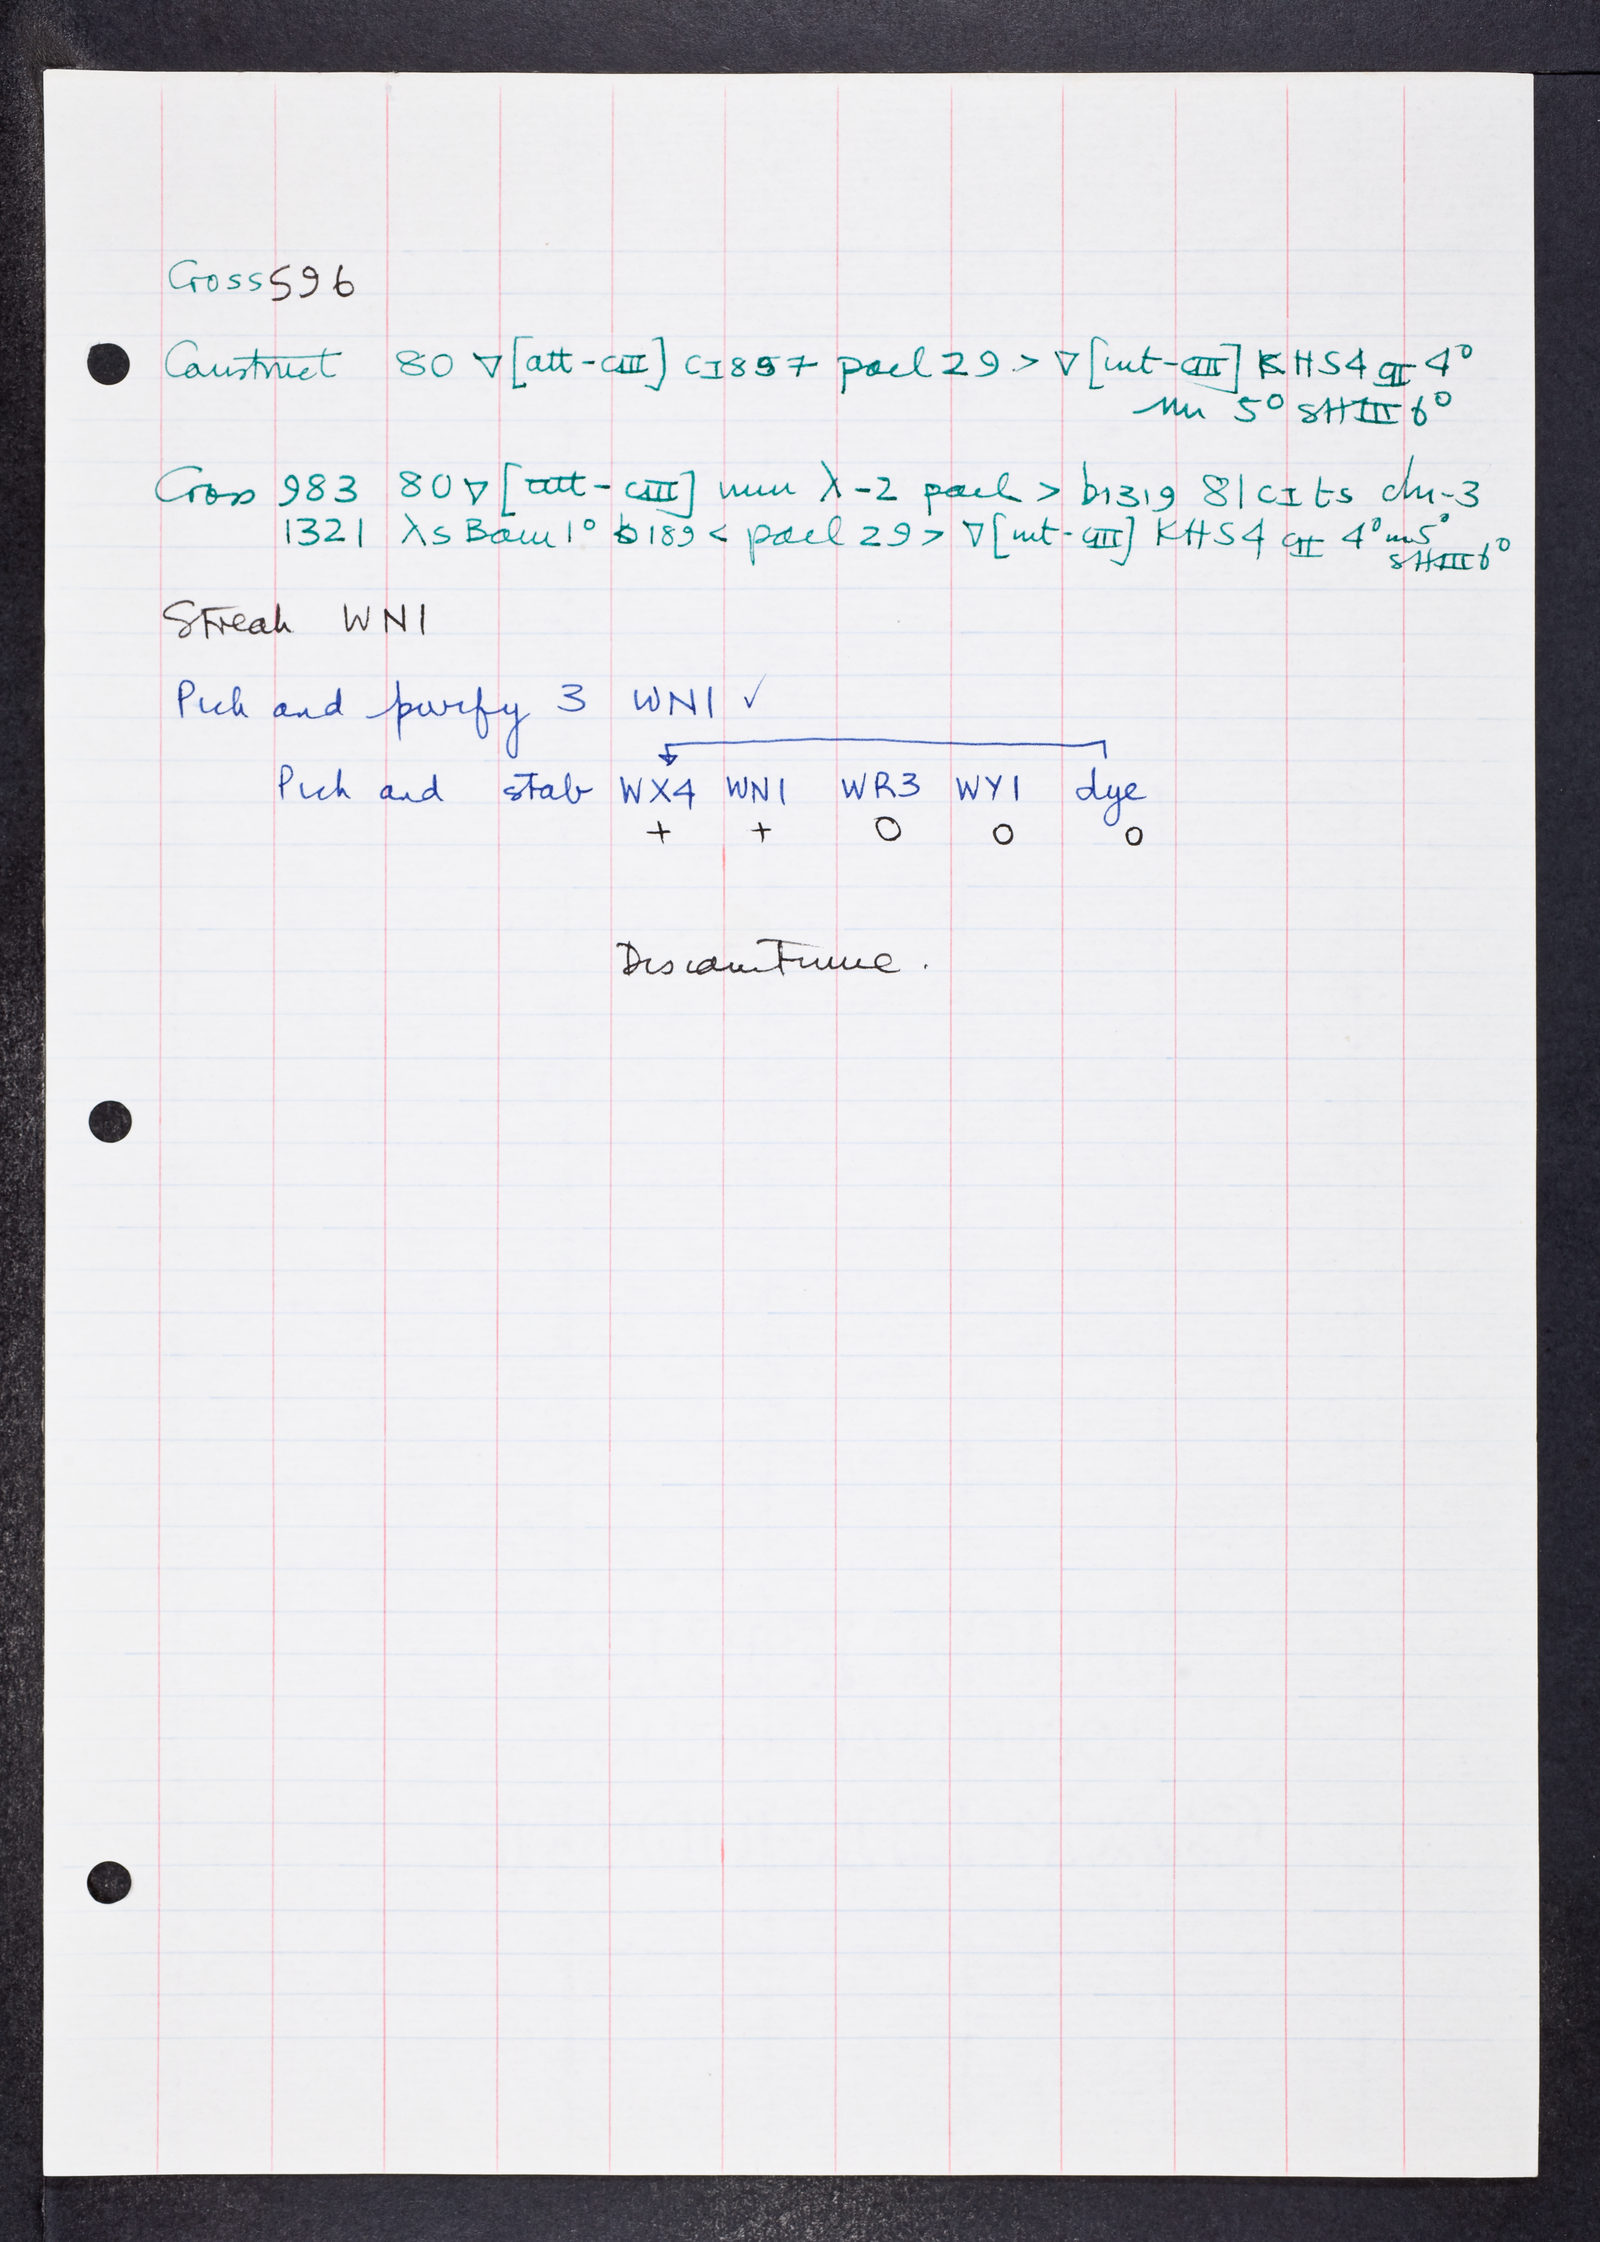 Cross 596
Construct 80 ∇[att-cIII] cI857 pael 29 > ∇[int-cIII] KHS4 cII 4°
nin 5° sHIII 6°
Cross 983 80∇[att-cIII] nin λ-2 pael > b1319 81 cI ts chi-3
1321 λs Bam 1° b189 < pael 29 > ∇[int-cIII] KHS4 cII 4° nin 5°
sHIII 6°
Streak WN1
Pick and purify 3 WN1 ✓
Pick and stab WX4 WN1 WR3 WY1 dye
+ + O O O
Discontinue.